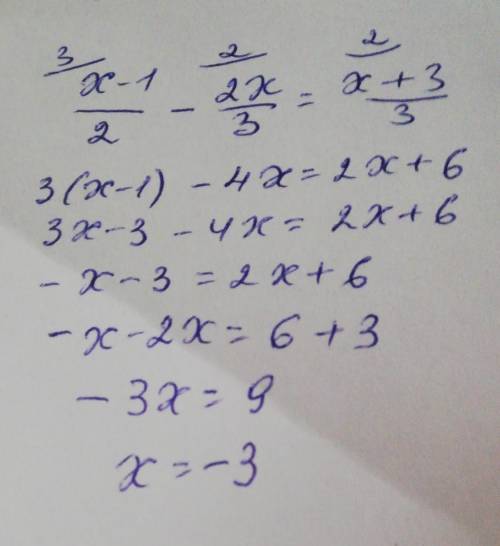 3/ 2/ 2/
(x-1)/2 - 2x/3 = (x+3)/3
3(x-1) - 4x = 2x+6
3x-3 - 4x = 2x+6
-x-3 = 2x+6
-x-2x = 6+3
-3x = 9
x = -3